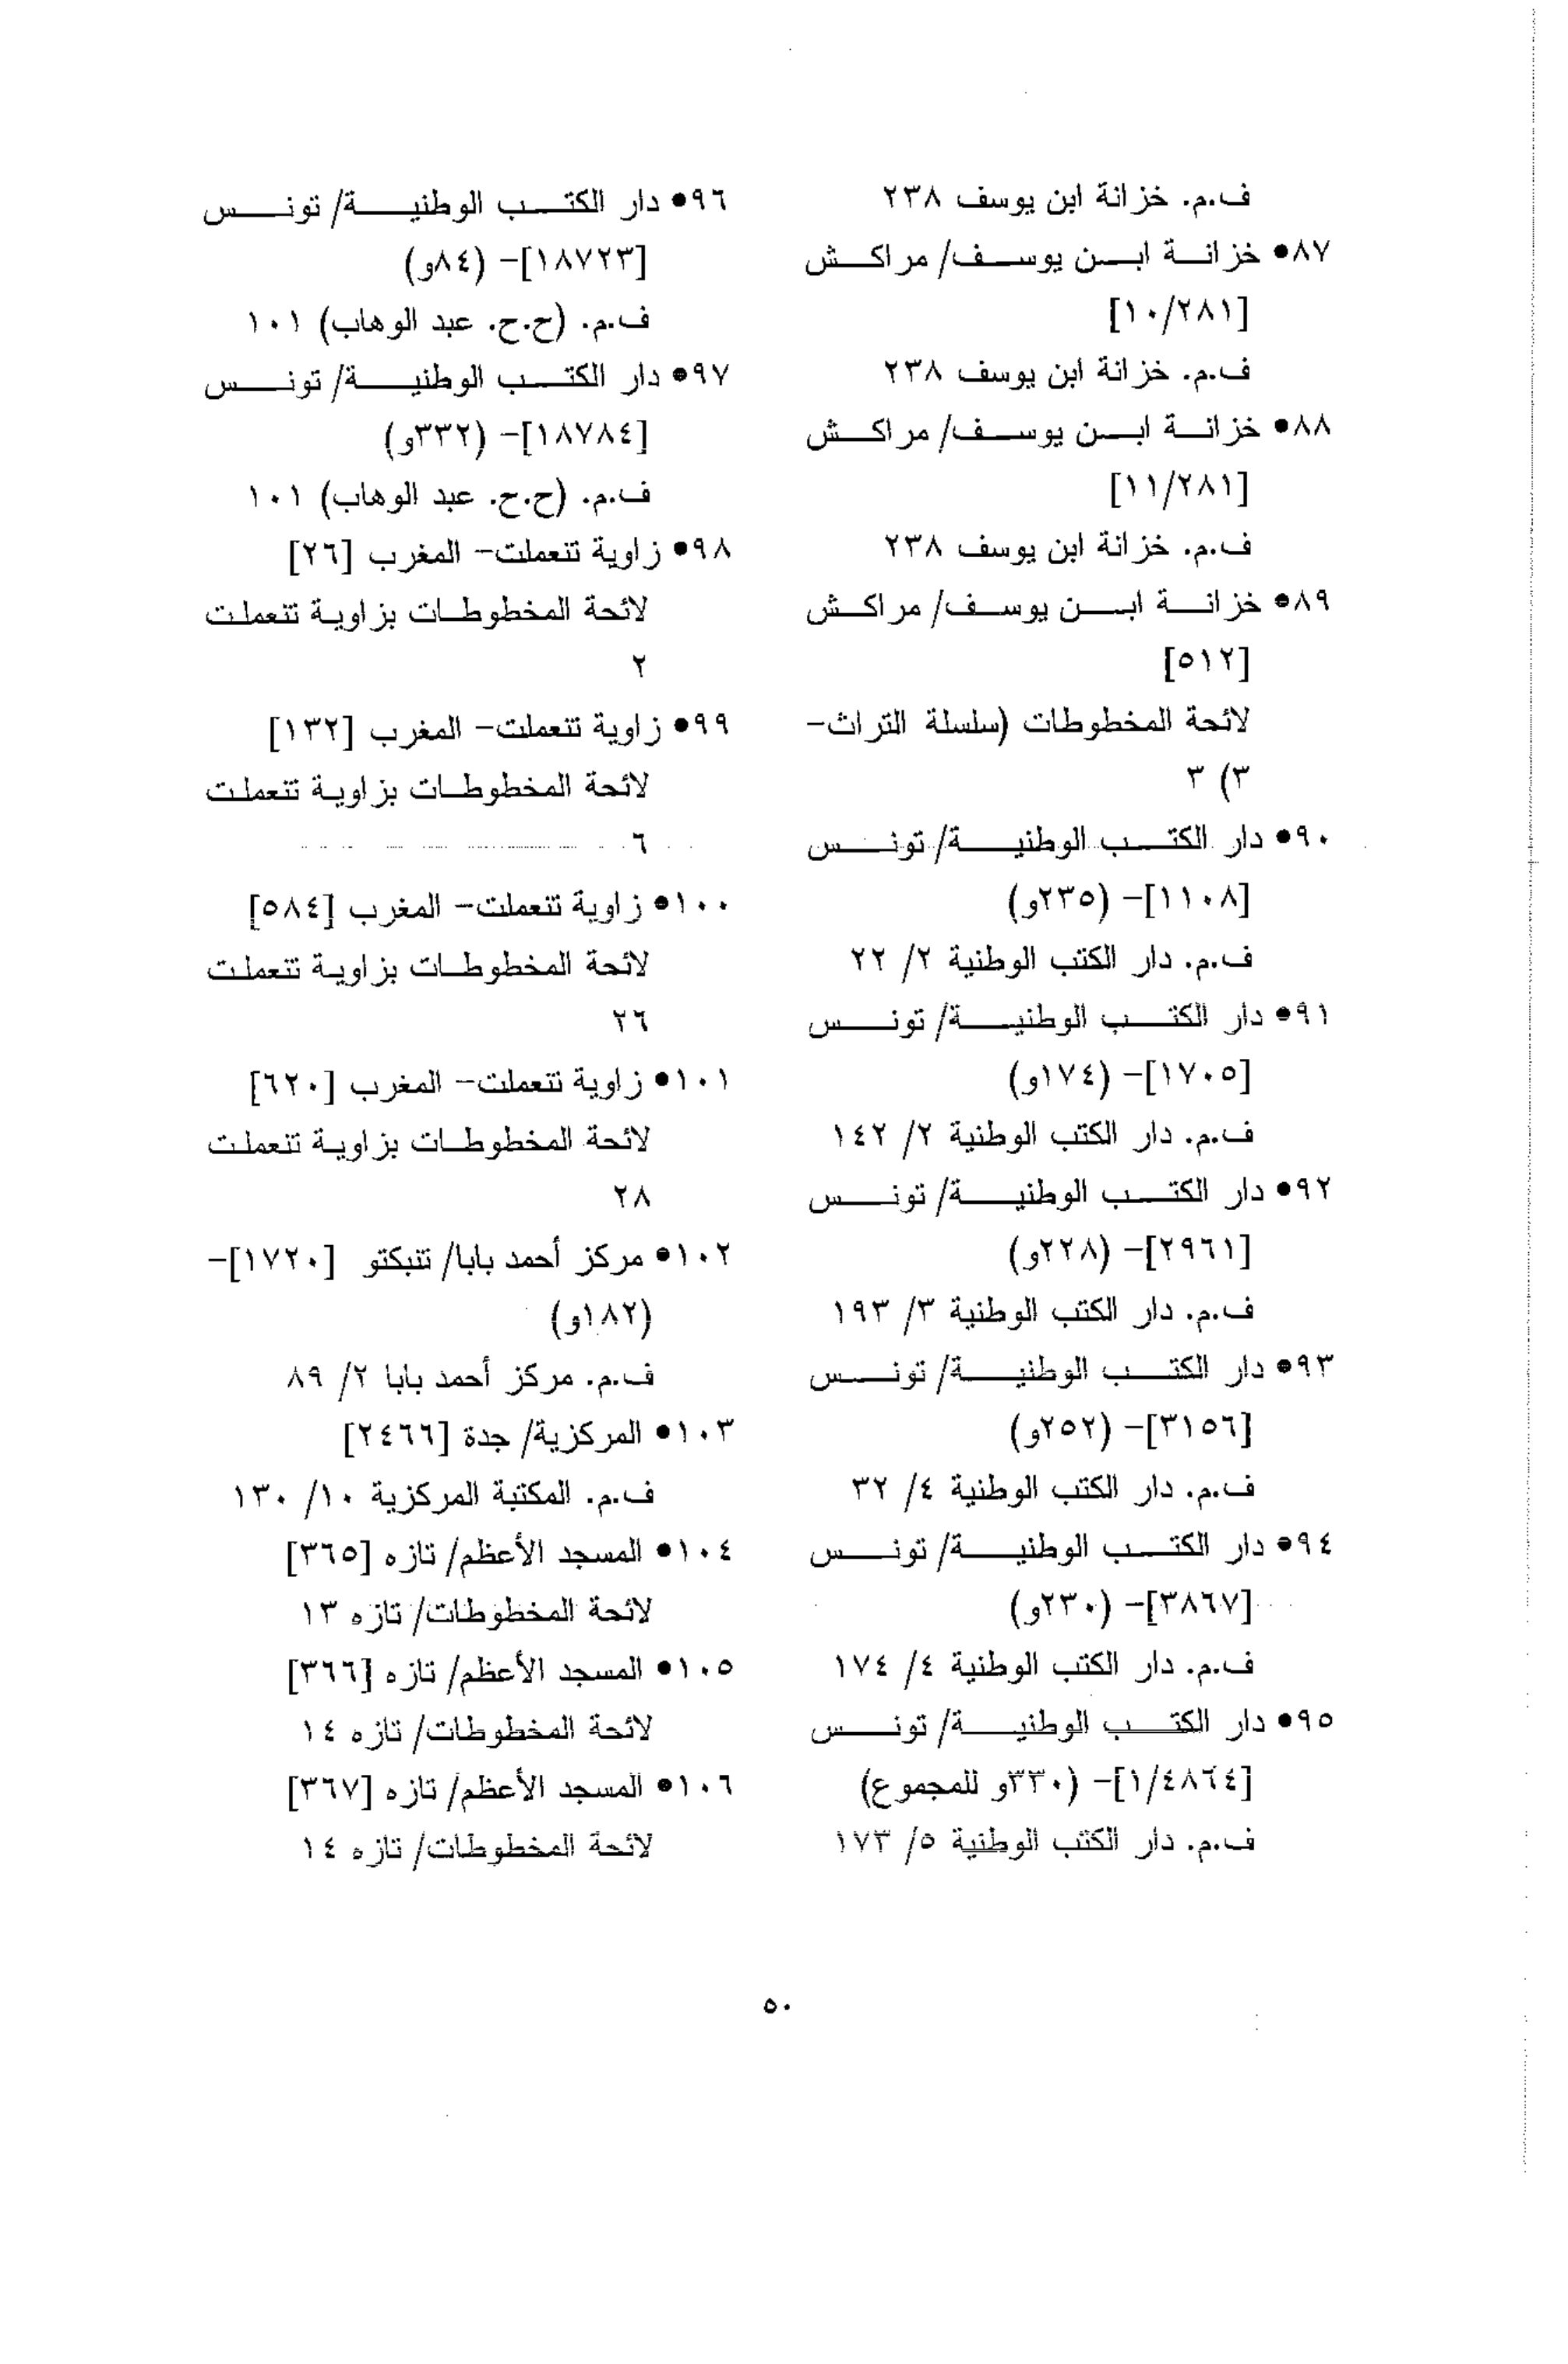 ف.م. خزانة ابن يوسف ٢٣٨
٨٧• خزانة ابن يوسف/ مراكش
[١٠/٢٨١]
ف.م. خزانة ابن يوسف ٢٣٨
٨٨• خزانة ابن يوسف/ مراكش
[١١/٢٨١]
ف.م. خزانة ابن يوسف ٢٣٨
٨٩• خزانة ابن يوسف/ مراكش
[٥١٢]
لائحة المخطوطات (سلسلة التراث-
٣) ٣
٩٠• دار الكتب الوطنية/ تونس
[١١٠٨]- (٢٣٥و)
ف.م. دار الكتب الوطنية ٢/ ٢٢
٩١• دار الكتب الوطنية/ تونس
[١٧٠٥]- (١٧٤و)
ف.م. دار الكتب الوطنية ٢/ ١٤٢
٩٢• دار الكتب الوطنية/ تونس
[٢٩٦١]- (٢٢٨و)
ف.م. دار الكتب الوطنية ٣/ ١٩٣
٩٣• دار الكتب الوطنية/ تونس
[٣١٥٦]- (٢٥٢و)
ف.م. دار الكتب الوطنية ٤/ ٣٢
٩٤• دار الكتب الوطنية/ تونس
[٣٨٦٧]- (٢٣٠و)
ف.م. دار الكتب الوطنية ٤/ ١٧٤
٩٥• دار الكتب الوطنية/ تونس
[١/٤٨٦٤]- (٣٣٠و للمجموع)
ف.م. دار الكتب الوطنية ٥/ ١٧٣
٩٦• دار الكتب الوطنية/ تونس
[١٨٧٢٣]- (٨٤و)
ف.م. (ح.ح. عبد الوهاب) ١٠١
٩٧• دار الكتب الوطنية/ تونس
[١٨٧٨٤]- (٣٣٢و)
ف.م. (ح.ح. عبد الوهاب) ١٠١
٩٨• زاوية تنعملت- المغرب [٢٦]
لائحة المخطوطات بزاوية تنعملت
٢
٩٩• زاوية تنعملت- المغرب [١٣٢]
لائحة المخطوطات بزاوية تنعملت
٦
١٠٠• زاوية تنعملت- المغرب [٥٨٤]
لائحة المخطوطات بزاوية تنعملت
٢٦
١٠١• زاوية تنعملت- المغرب [٦٢٠]
لائحة المخطوطات بزاوية تنعملت
٢٨
١٠٢• مركز أحمد بابا/ تنبكتو [١٧٢٠]-
(١٨٢و)
ف.م. مركز أحمد بابا ٢/ ٨٩
١٠٣• المركزية/ جدة [٢٤٦٦]
ف.م. المكتبة المركزية ١٠/ ١٣٠
١٠٤• المسجد الأعظم/ تازه [٣٦٥]
لائحة المخطوطات/ تازه ١٣
١٠٥• المسجد الأعظم/ تازه [٣٦٦]
لائحة المخطوطات/ تازه ١٤
١٠٦• المسجد الأعظم/ تازه [٣٦٧]
لائحة المخطوطات/ تازه ١٤
٥٠